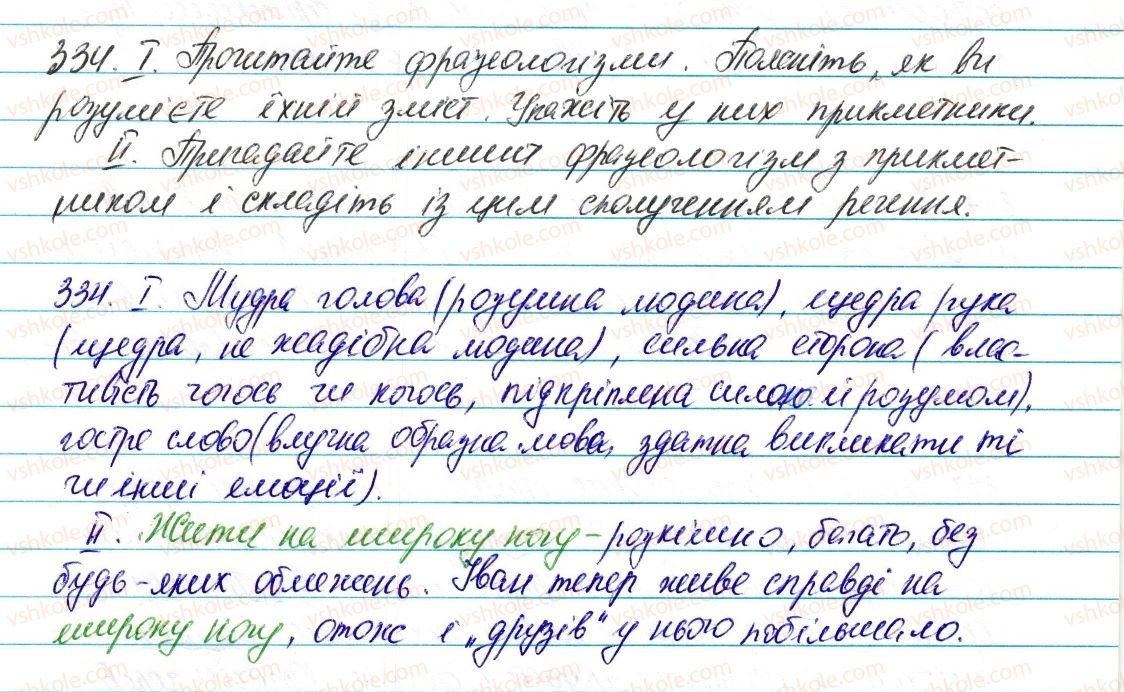 334. І. Прочитайте фразеологізми. Поясніть, як ви
розумієте їхній зміст. Укажіть у них прикметники.
ІІ. Пригадайте інший фразеологізм з прикмет-
ником і складіть із цим сполученням речення.
334. І. Мудра голова (розумна людина), щедра рука
(щедра, не жадібна людина), сильна сторона (влас-
тивість чогось чи когось, підкріплена силою й розумом),
гостре слово (влучна образна мова, здатна викликати ті
чи інші емоції).
ІІ. Жити на широку ногу – розкішно, багато, без
будь-яких обмежень. Іван тепер живе справді на
широку ногу, отож і „друзів" у нього побільшало.